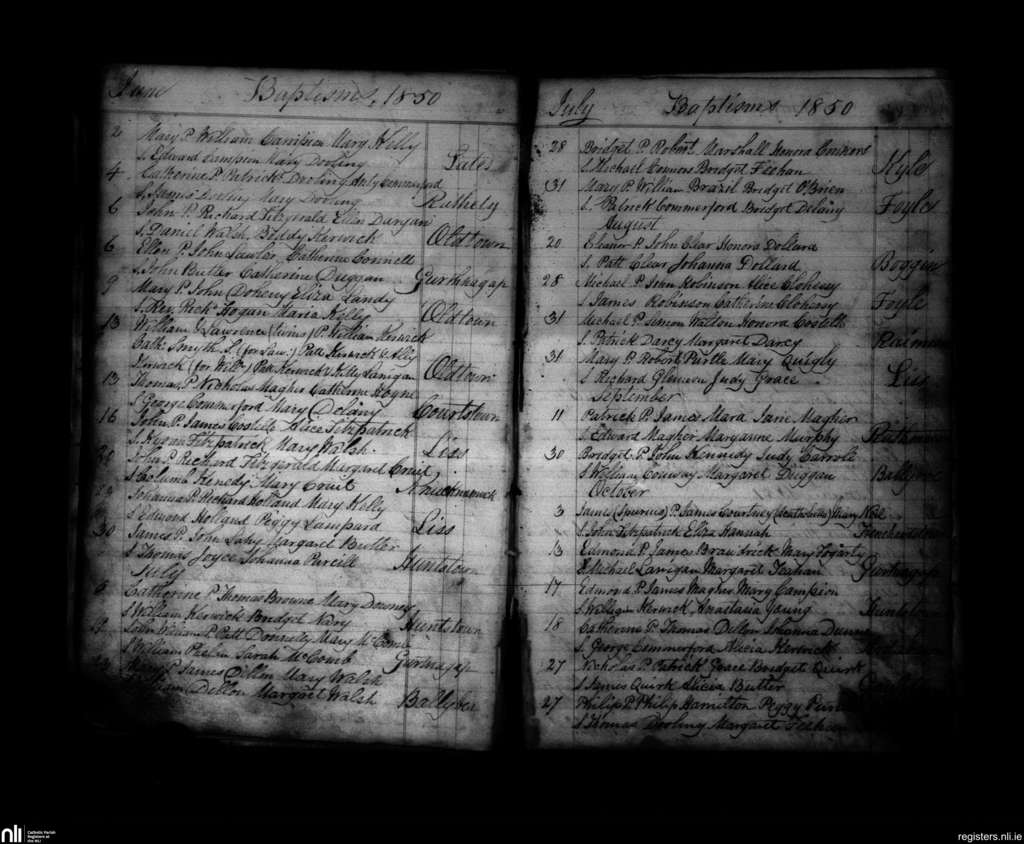 June Baptisms, 1850
2 Mary P. William Campion Mary Kelly
S. Edward Campion Mary Dooling Tates
4 Catherine P. Patrick Dooling Anty Commerford
S. James Dooling Mary Dooling Ruthely
6 John P. Richard Fitzgerald Ellen Dargan
S. Daniel Walsh, Biddy Kerwick Oldtown
6 Ellen P. John Lawlor, Catherine Connell
S. John Butler Catherine Duggan Gurthagap
9 Mary P. John Doheny Eliza Landy
S. Rev. Rich. Hogan Maria Kelly Oldtown
13 William & Lawrence (twins) P. William Kerwick
Cath. Smyth S. (for Law.) Patt Kerwick & Ally
Kerwick (for Will.m) Patt Kerwick & Kelly Lanigan Oldtown
13 Thomas P. Nicholas Magher Catherine Hogne
S. George Commerford Mary Delany Courtstown
16 John P. James Costello Alice Fitzpatrick
S. Kieran Fitzpatrick Mary Walsh Liss
John P. Richard Fitzgerald Margaret Cruit
S. Colum Kenedy Mary Cruit
29 Johanna P. Richard Holland Mary Kelly
S. Edmond Holland Peggy Lampard Liss
30 James P. John Lahy Margaret Butler
S. Thomas Joyce Johanna Purcill Huntstown
July
Catherine P. Thomas Browne Mary Downey
S. William Kerwick Bridget Nary Huntstown
John William P. Patt Donnelly Mary McComb
S. William Phelan Sarah McComb Gurthagap
P. James Dillon Mary Walsh
Dillon Margaret Walsh
July Baptisms 1850
28 Bridget P. Robert Marshall Honora Connors
S. Michael Connors Bridget Feehan Kyle
31 Mary P. William Brazil Bridget O'Brien
S. Patrick Commerford Bridget Delany Foyle
August
20 Eleanor P. John Clear Honora Dollard
S. Patt Clear Johanna Dollard Boggin
28 Michael P. John Robinson Alice Clohessy
S. James Robinson Catherine Clohessy Foyle
31 Michael P. Simon Walton Honora Costello
S. Patrick Darcy Margaret Darcy
31 Mary P. Robert Purtle Mary Quigly
S. Richard Glennon Judy Grace Liss
September
11 Patrick P. James Mara Jane Magher
S. Edward Magher Maryanne Murphy
30 Bridget P. John Kennedy Judy Carroll
S. William Conway Margaret Duggan
October
3 James (Spurius) P. James Courtney (Acatholicus) Mary Neil
S. John Fitzpatrick Eliza Hannah
13 Edmond P. James Brawdrick Mary Fogarty
S. Michael Lanigan Margaret Feehan Gurthagap
17 Edmond P. James Magher Mary Campion
S. William Kerwick, Anastasia Young
18 Catherine P. Thomas Dillon Johanna Dunne
S. George Commerford Alicia Kerwick
27 Nicholas P. Patrick Grace Bridget Quirk
S. James Quirk Alicia Butler
27 Philip P. Philip Hamilton Peggy
S. Thomas Dooling Margaret Feehan
nli Catholic Parish
Registers at
the NLI
registers.nli.ie